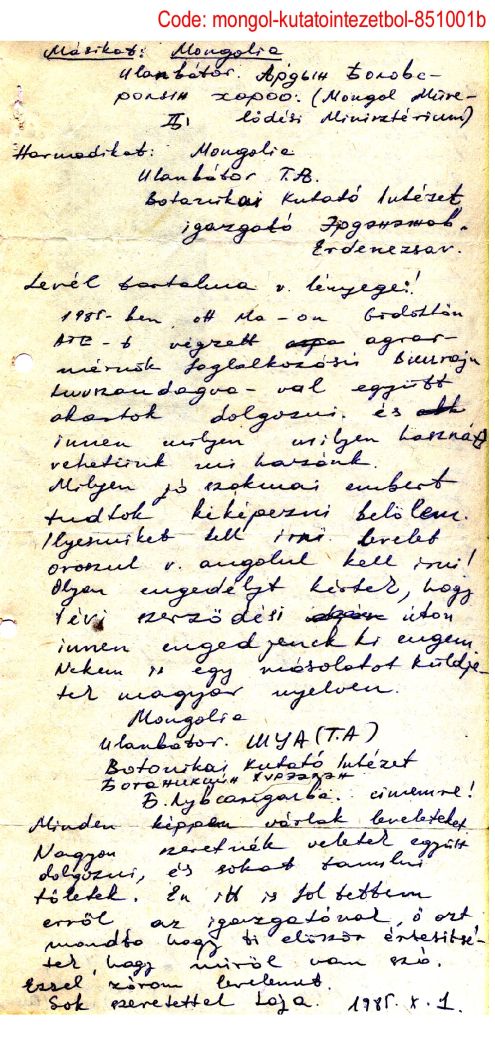 Code: mongol-kutatointezetbol-851001b
Másikat: Mongolia
Ulanbátor. Ардын Болов-
ролын хороо. (Mongol Műve-
lődési Minisztérium)
Harmadikat: Mongolia
Ulanbátor T.A.
Botanikai Kutató Intézet
igazgató
Erdenezsav.
Levél tartalma v. lényege!
1985-ben itt Ma-on
ATE-t végzett agrár-
mérnök foglalkozású
Luvszandagva-val együtt
akartok dolgozni. és
innen milyen milyen hasznát
vehetünk mi hazánk.
Milyen jó szakmai embert
tudtok kiképezni belőlem.
Ilyesmiket kell írni. levelet
oroszul v. angolul kell írni!
Olyan engedélyt kértek, hogy
1 évi szerződési úton
innen engedjenek ki engem
Nekem is egy másolatot küldje-
tek magyar nyelven.
Mongolia
Ulanbátor. ШУА (T.A)
Botanikai Kutató Intézet
Ботаникийн хүрээлэн
Б. Лувсандагва. címemre!
Minden képpen várlak leveleteket
Nagyon szeretnék veletek együtt
dolgozni, és sokat tanulni
tőletek. Én itt is fol tettem
erről az igazgatónak, ő azt
mondta hogy ti először értesítsé-
tek, hogy miről van szó.
Ezzel zárom levelemet.
Sok szeretettel Loja. 1985. X. 1.